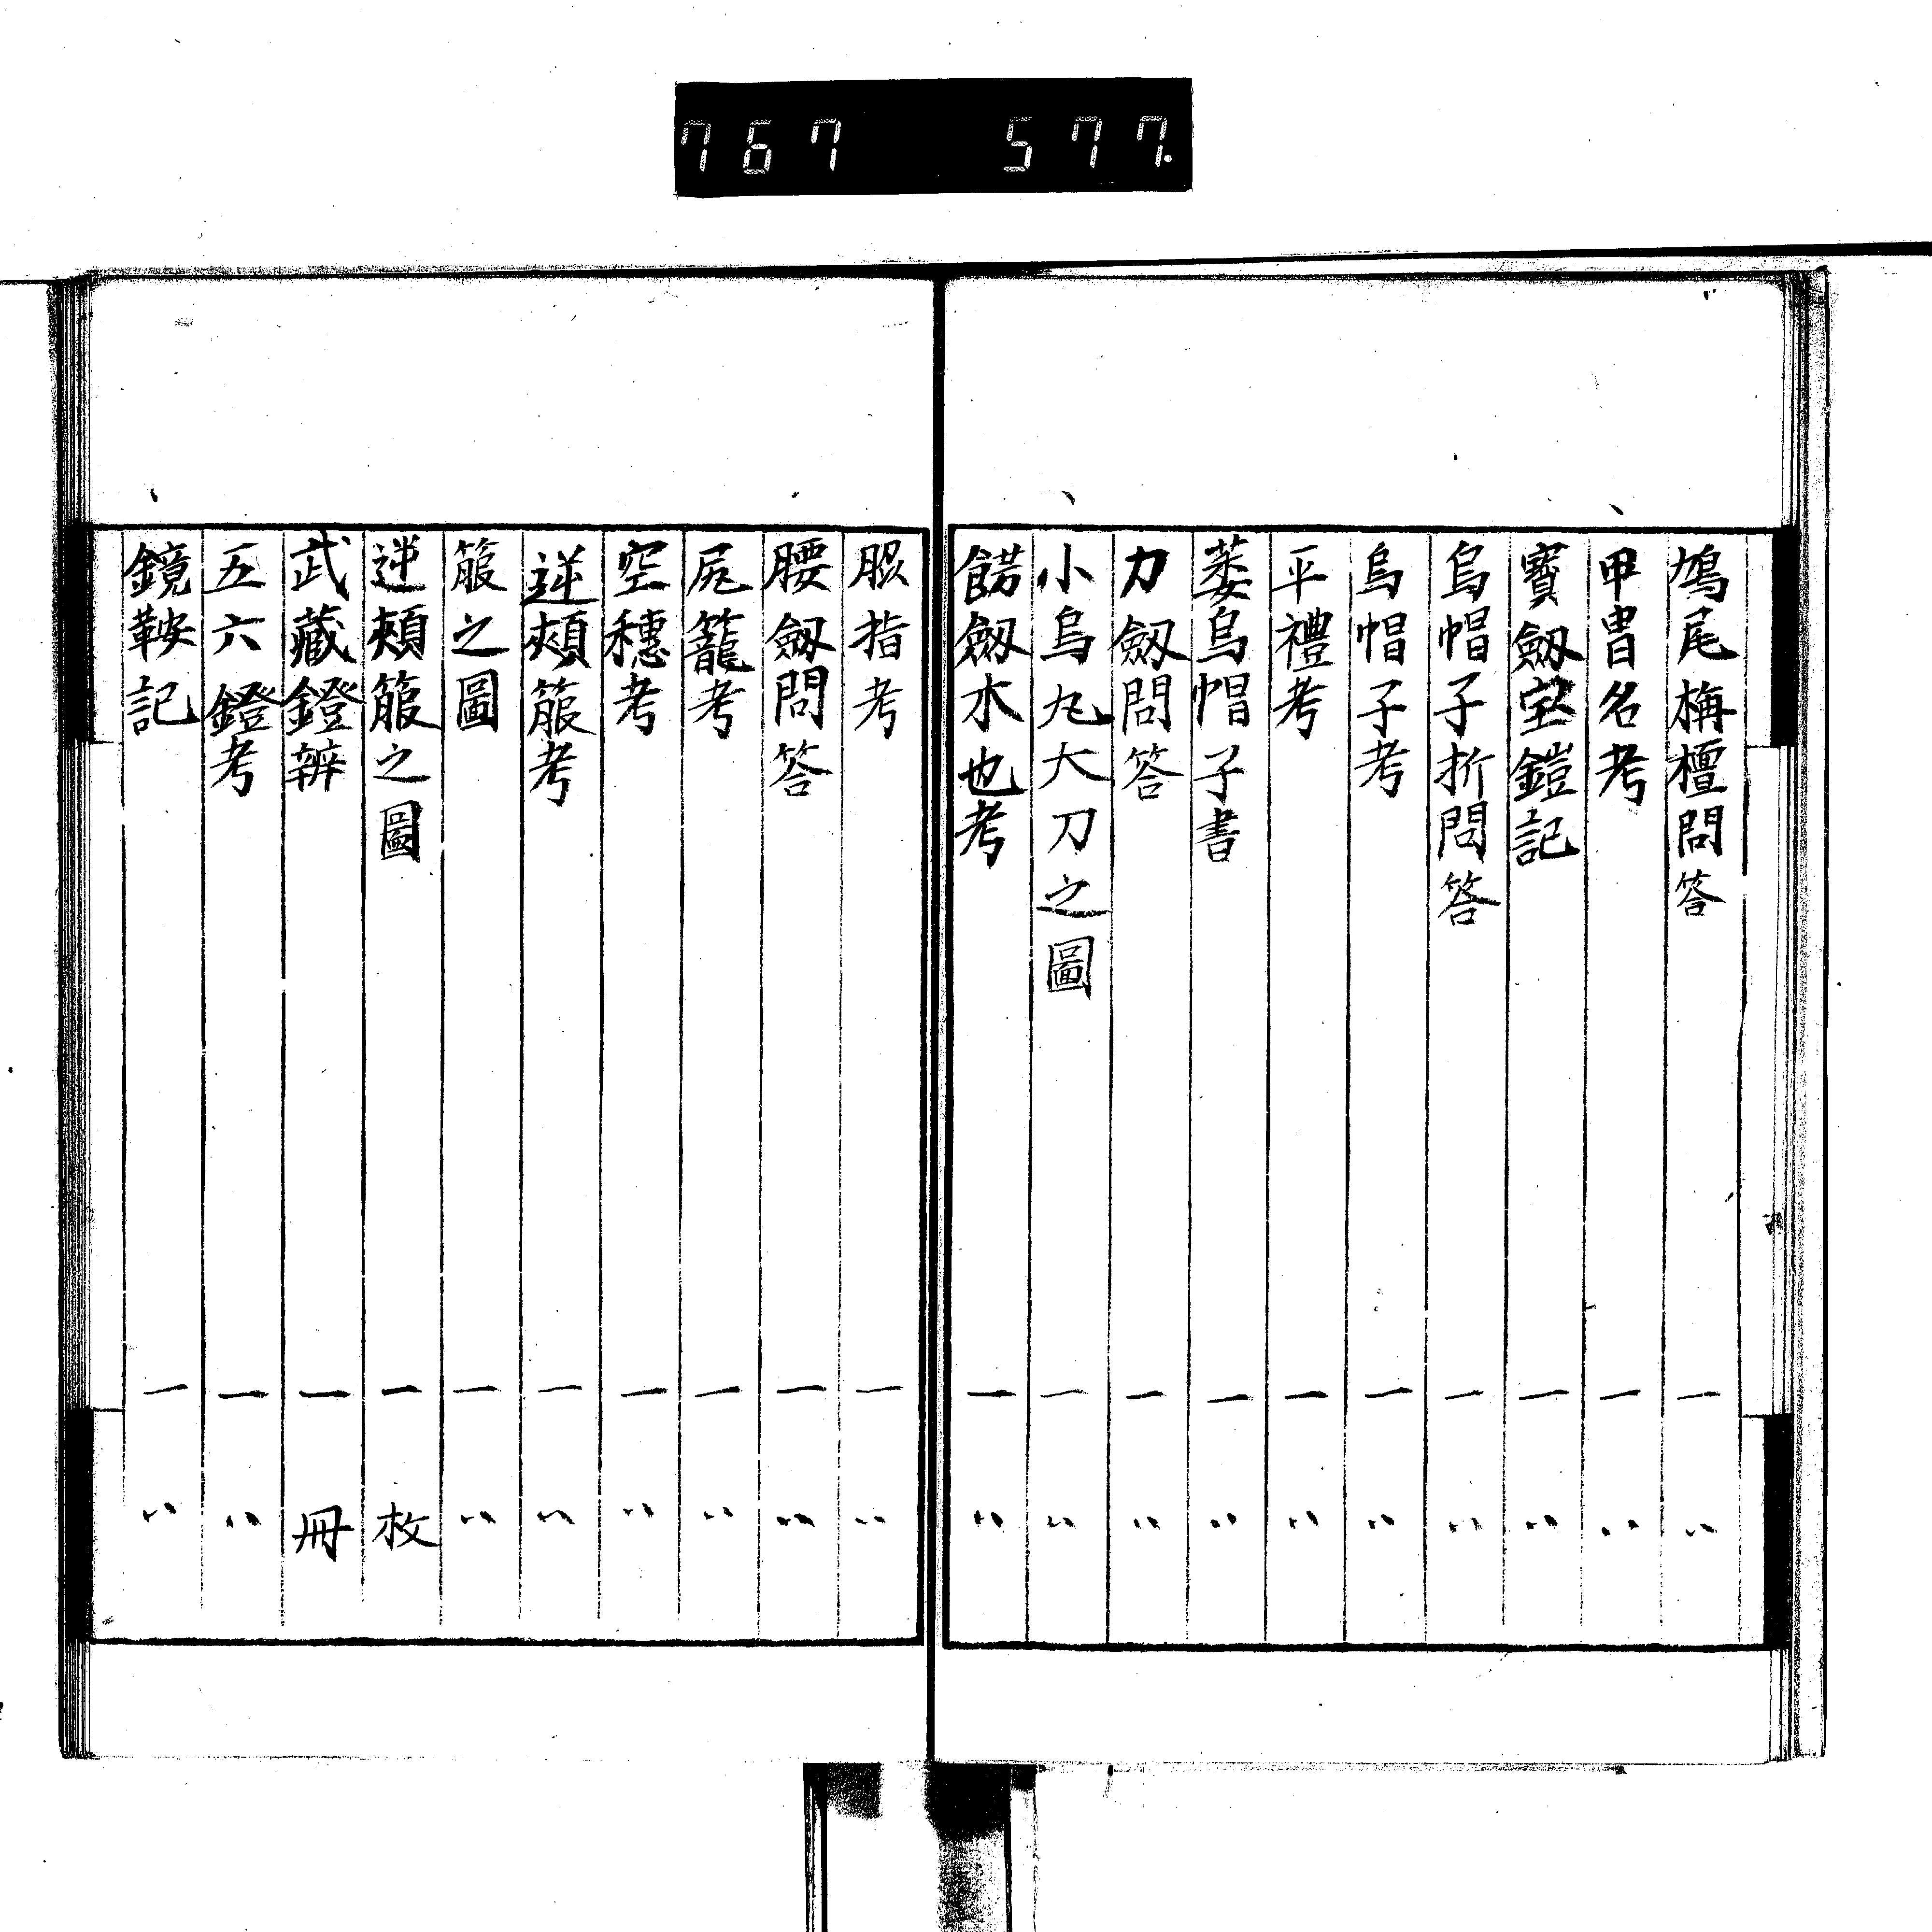 767 577.
鳩尾栴檀問答 一 〃
甲冑名考 一 〃
寶劔宝鎧記 一 〃
烏帽子折問答 一 〃
烏帽子考 一 〃
平禮考 一 〃
萎烏帽子書 一 〃
力劔問答 一 〃
小烏丸大刀之圖 一 〃
餝劔水也考 一 〃
指考 一 〃
腰劔問答 一 〃
尻籠考 一 〃
空穗考 一 〃
逆頰箙考 一 〃
箙之圖 一 〃
逆頰箙之圖 一 枚
武藏鐙辨 一 冊
五六鐙考 一 〃
鏡鞍記 一 〃